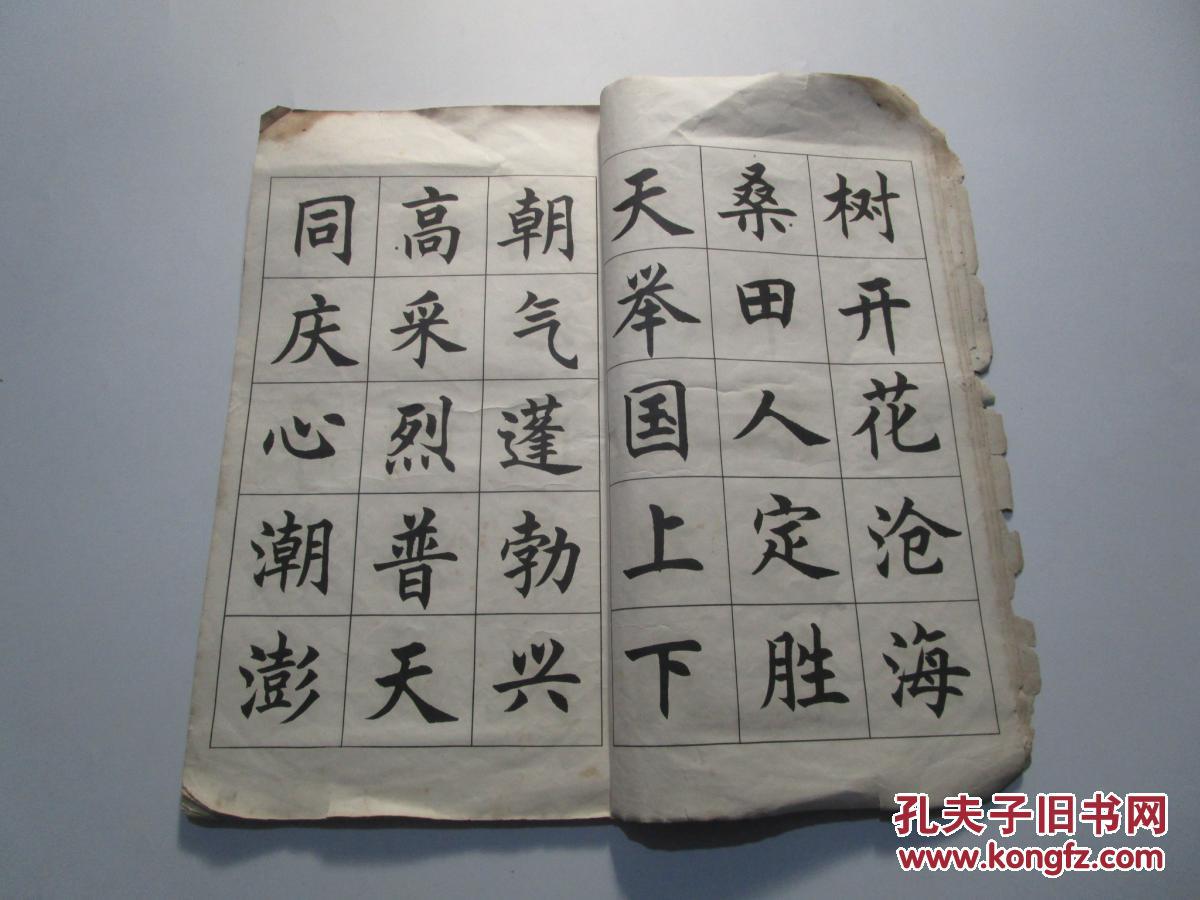 树开花沧海
桑田人定胜
天举国上下
朝气蓬勃兴
高采烈普天
同庆心潮澎
孔夫子旧书网
www.kongfz.com